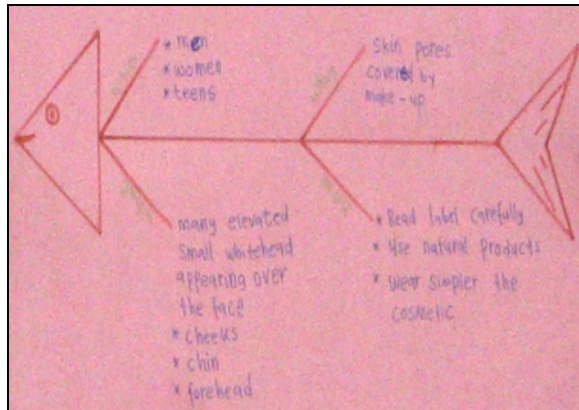 * men
* women
* teens
skin pores
covered by
make-up
many elevated
small whitehead
appearing over
the face
* cheeks
* chin
* forehead
* Read label carefully
* Use natural products
* wear simpler the
cosmetic